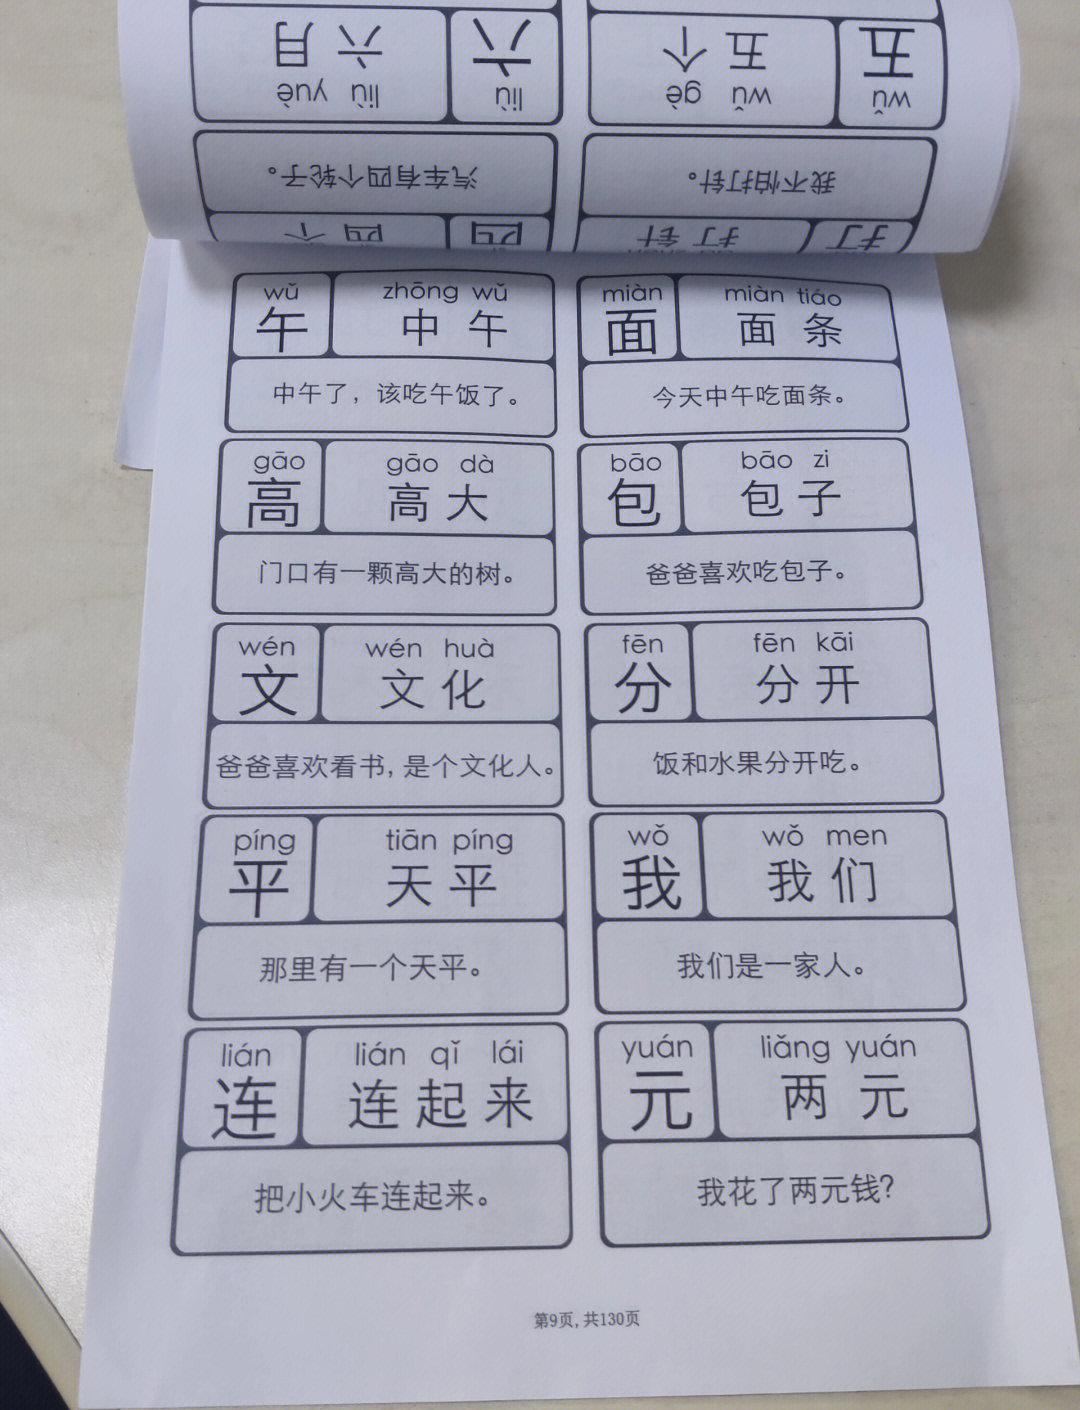 六月
六
五个
五
liù yuè
liù
wǔ gè
wǔ
汽车有四个轮子。
我不怕打针。
四个
四
打针
打
wǔ
zhōng wǔ
午
中午
中午了，该吃午饭了。
miàn
miàn tiáo
面
面条
今天中午吃面条。
gāo
gāo dà
高
高大
门口有一颗高大的树。
bāo
bāo zi
包
包子
爸爸喜欢吃包子。
wén
wén huà
文
文化
爸爸喜欢看书,是个文化人。
fēn
fēn kāi
分
分开
饭和水果分开吃。
píng
tiān píng
平
天平
那里有一个天平。
wǒ
wǒ men
我
我们
我们是一家人。
lián
lián qǐ lái
连
连起来
把小火车连起来。
yuán
liǎng yuán
元
两元
我花了两元钱?
第9页,共130页